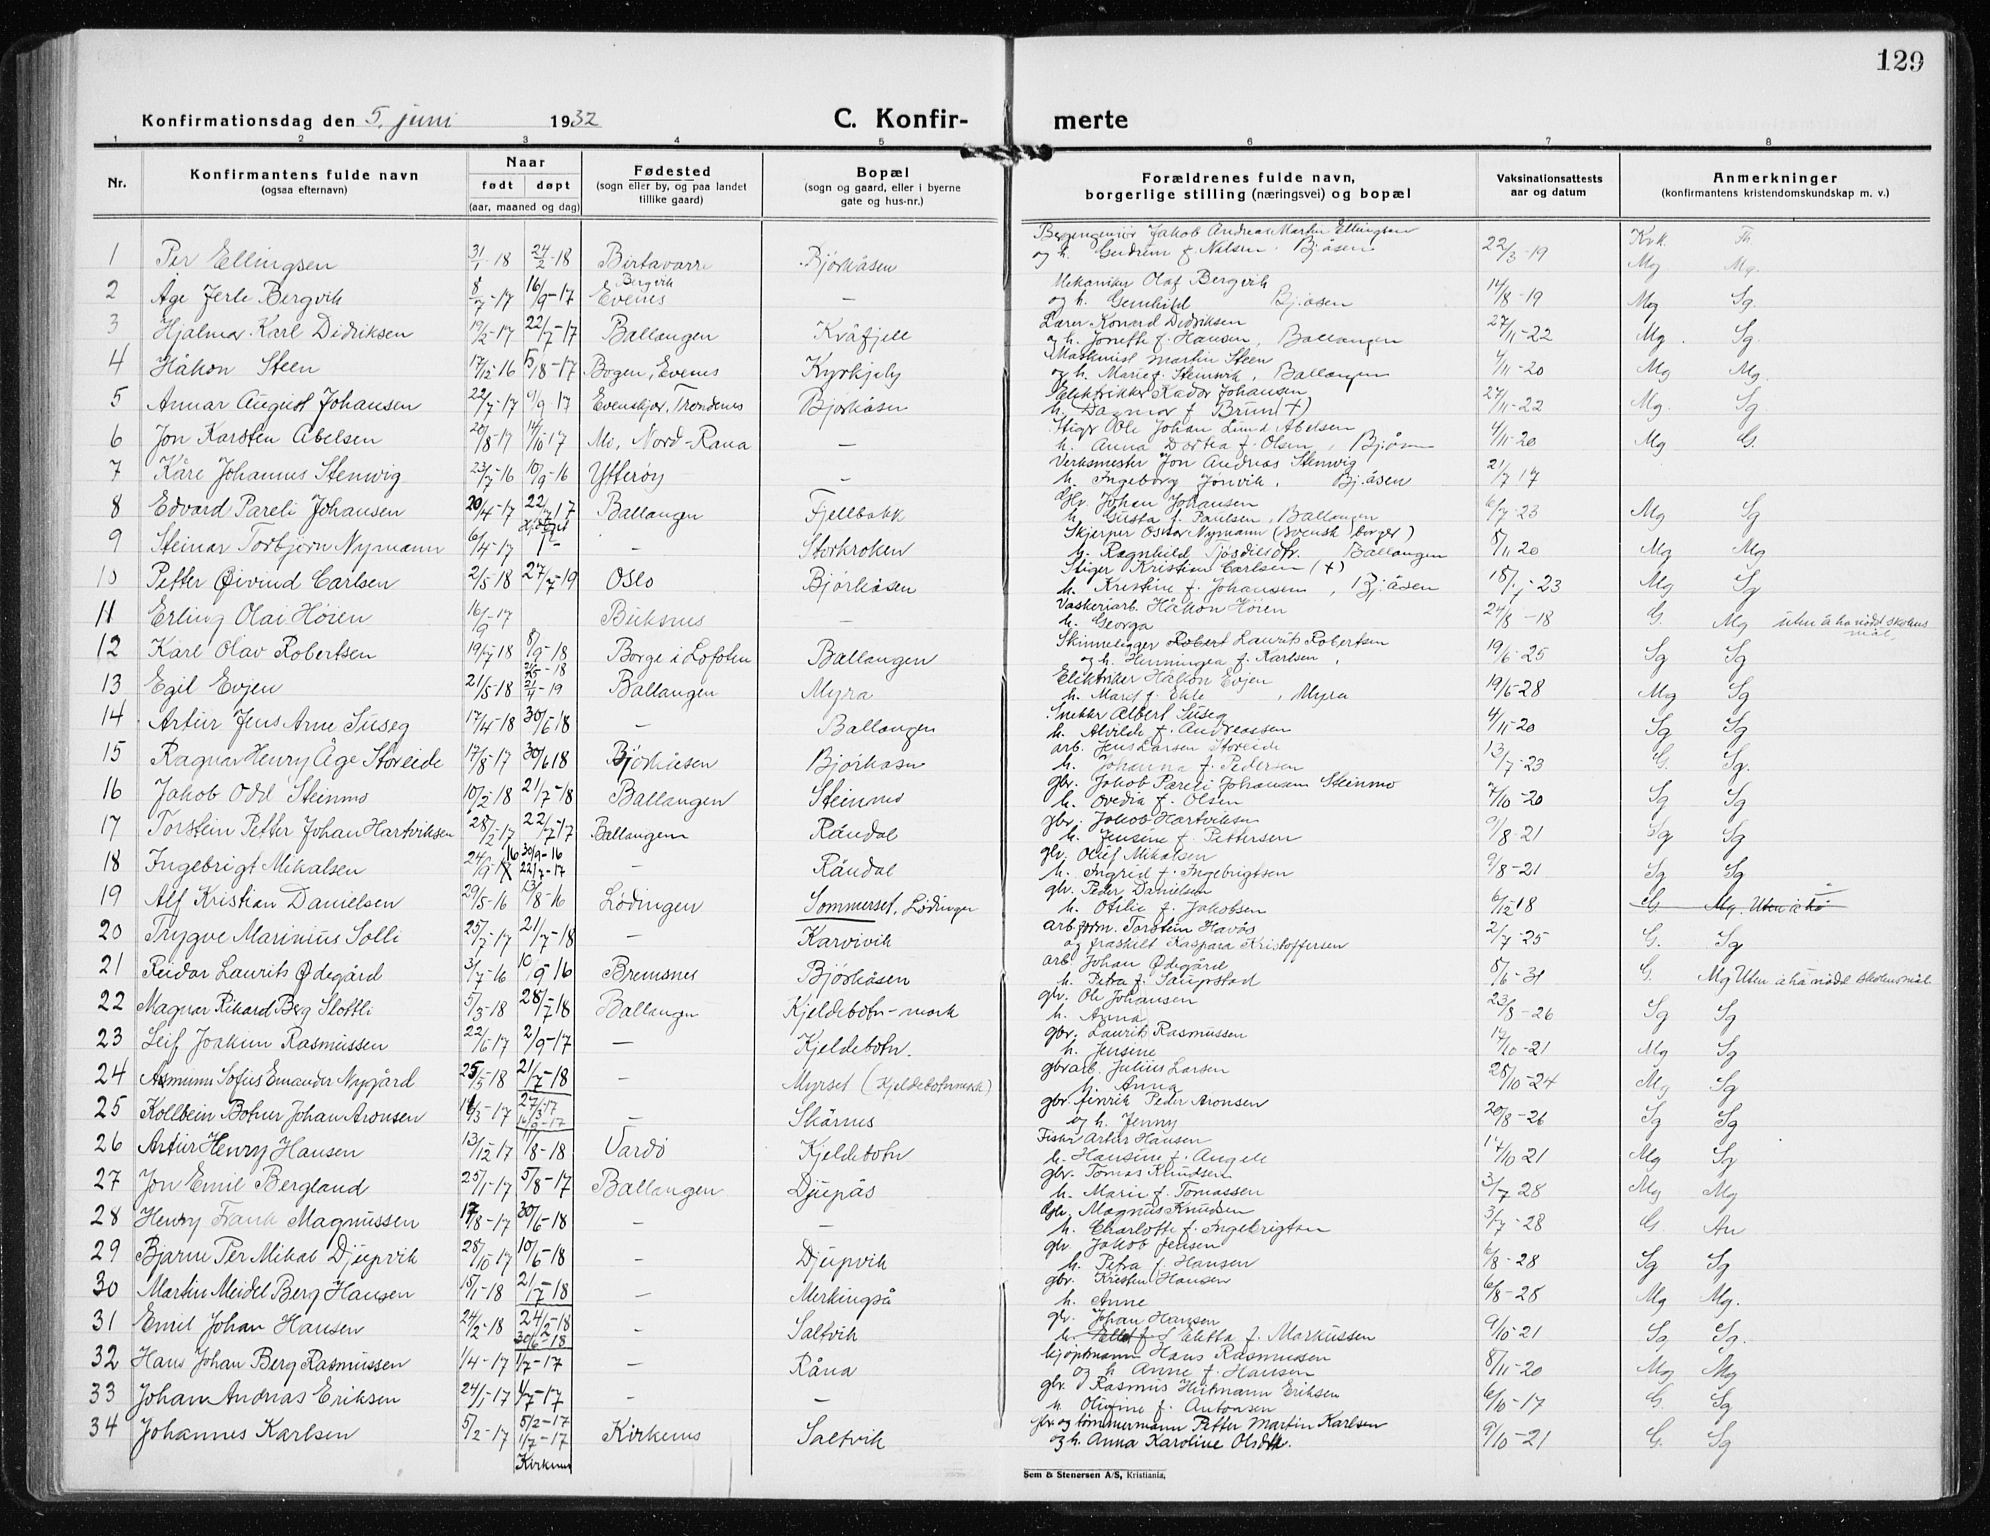 129
Konfirmationsdag den 5. juni 1932
C. Konfirmerte
1 2 3 4 5 6 7 8
Nr.
Konfirmantens fulde navn
(ogsaa efternavn)
Naar
født døpt
(aar, maaned og dag)
Fødested
(sogn eller by, og paa landet
tillike gaard)
Bopæl
(sogn og gaard, eller i byerne
gate og hus-nr.)
Forældrenes fulde navn,
borgerlige stilling (næringsvei) og bopæl
Vaksinationsattests
aar og datum
Anmerkninger
(konfirmantens kristendomskundskap m. v.)
Krk. Fr.
1 Per Ellingsen 31/1-18 24/2-18 Birtavarre Bjørkåsen Bergingeniør Jakob Andreas Martin Ellingsen og h. Gudrun f. Nilsen. Bjåsen 22/3-19 Mg. Mg.
2 Åge Jerle Bergvik 8/7-17 16/9-17 Bergvik Evenes — Mekaniker Olaf Bergvik og h. Gunhild Bj.åsen 14/8-19 Mg Sg.
3 Hjalmar Karl Didriksen 19/2-17 22/7-17 Ballangen Kvåfjell Lærer Konard Didriksen og h. Jonette f. Hansen, Ballangen 27/11-22 Mg. Sg.
4 Håkon Steen 17/12-16 5/8-17 Bogen, Evenes Kyrkjeby Maskinist Martin Steen og h. Marie f. Steinvik, Ballangen 4/11-20 Mg Mg.
5 Annar August Johansen 22/7-17 9/9-17 Evenskjer, Trondenes Bjørkåsen Elektrikker Kador Johansen h. Dagmar f. Brun (+) 27/11-22 Mg. Sg
6 Jon Karsten Abelsen 20/8-17 14/10-17 Mo, Nord-Rana — Stiger Ole Johan Lund Abelsen h. Anna Dortea f. Olsen, Bjåsen 4/11-20 Mg G.
7 Kåre Johannes Stenwig 23/7-16 10/9-16 Ytterøy — Verksmester Jon Andreas Stenwig h. Ingeborg Jonvik, Bj.åsen 21/7 17
8 Edvard Pareli Johansen 20/4-17 22/7 17 Ballangen Fjellbakk Gbr. Johan Johansen h. Gusta f. Paulsen, Ballangen 6/7-23 Mg Sg
9 Steinar Torbjørn Nymann 6/4-17 — Storkroken Skjerper Oskar Nymann (svensk borger) h. Ragnhild Tjøsdilsdtr. Ballangen 8/11 20 Mg Mg
10 Petter Øivind Carlsen 2/5-18 27/7-19 Oslo Bjørkåsen Stiger Kristian Carlsen (+) h. Kristine f. Johansen, Bj.åsen 23 Mg Sg
11 Erling Olai Høien 16/9-17 Buksnes — Vaskeriarb. Håkon Høien h. Georga 24/8-18 G. Mg uten å ha nådd skolens mål.
12 Karl Olav Robertsen 19/7 18 8/9-18 Borge i Lofoten Ballangen Skinnelegger Robert Laurits Robertsen og h. Henningea f. Karlsen, 19/6-25 Sg Sg
13 Egil Evjen 21/5-18 21/4-19 Ballangen Myra Elektriker Håkon Evjen h. Maret f. Ekle, Myra 19/6-28 Mg Sg
14 Artur Jens Arne Suseg 17/4-18 30/6 18 — Ballangen Snekker Albert Suseg h. Alvilde f. Andreassen 4/11-20 Sg Sg
15 Ragnar Henry Åge Storeide 17/8-17 30/6 18 Bjørkåsen Bjørkåsen arb. Jens Larsen Storeide h. Johanna f. Pedersen 13/7-23 G. Sg.
16 Jakob Odd Steinmo 10/2-18 21/7-18 Ballangen Steinmo gbr. Jakob Pareli Johansen Steinmo h. Ovedia f. Olsen 7/10-20 Sg Sg
17 Torstein Petter Johan Hartviksen 28/2-17 22/7-17 Ballangen Råndal gbr. Jakob Hartviksen h. Jensine f. Pettersen 9/8-21 Sg Sg
18 Ingebrigt Mikalsen 24/9-16 30/9-16 22/7-17 — Råndal gbr. Oluf Mikalsen h. Ingrid f. Ingebrigtsen 9/8-21 Sg Sg
19 Alf Kristian Danielsen 29/5-16 13/8-16 Lødingen Sommerset, Lødingen gbr. Peder Danielsen h. Otilie f. Jakobsen 6/12 18 G. Mg. Uten å ha
20 Trygve Marinius Solli 25/7-17 21/7-18 — Karvivik arb.form. Torstein Havås og fraskilt Kaspara Kristoffersen 2/7-25 G. Sg
21 Reidar Laurits Ødegård 3/7-16 10/9-16 Bremsnes Bjørkåsen arb. Johan Ødegård h. Petra f. Saupstad 8/6-31 G. Mg Uten å ha nådd skolens mål.
22 Magnar Rikard Berg Slottli 5/3-18 28/7 18 Ballangen Kjeldebotn-mark gbr. Ole Johansen h. Anna 23/8-26 Sg Sg
23 Leif Joakim Rasmussen 22/6-17 2/9-17 — Kjeldebotn. gbr. Laurits Rasmussen h. Jensine 14/10-21 Mg Sg
24 Asmunn Sofus Emander Nygård 25/5-18 21/7-18 — Myrset (Kjeldebotnmark) gbr.arb. Julius Larsen h. Anna 28/10-24 Mg Sg
25 Kollbein Botner Johan Aronsen 14/3-17 27/5-17 16/9-17 — Skårnes gbr. Hinrik Peder Aronsen og h. Jenny 20/8-26 Sg Sg
26 Artur Henry Hansen 13/12 17 11/8-18 Vardø Kjeldebotn Fisker Artur Hansen h. Hansine f. Angell 14/10 21 Mg Sg
27 Jon Emil Bergland 25/1-17 5/8-17 Ballangen Djupås gbr. Tomas Knudsen h. Marie f. Tomassen 3/7 28 Mg Mg
28 Henry Frank Magnussen 17/8-17 30/6-18 — — Gbr. Magnus Knudsen h. Charlotte f. Ingebrigtsen 3/7-28 G An
29 Bjarne Per Mikal Djupvik 28/10 17 10/6-18 — Djupvik gbr Jakob Jensen h. Petra f. Hansen 6/8-28 Sg Sg
30 Martin Meidel Berg Hansen 15/1-18 21/7-18 — Merkingså gbr. Kristen Hansen h. Anne 6/8-28 Mg Mg.
31 Emil Johan Hansen 24/2-18 24/2-18 30/6-18 — Saltvik gbr. Johan Hansen h. Eletta f. Markussen 9/10-21 Sg Sg.
32 Hans Johan Berg Rasmussen 1/4-17 1/7-17 — Råna kjøpmann Hans Rasmussen og h Anne f. Hansen 8/11-20 Mg Mg
33 Johan Andreas Eriksen 24/1-17 1/7-17 — — gbr. Rasmus Hutmann Eriksen h. Olivine f. Antonsen 6/10-17 G. Sg
34 Johannes Karlsen 5/2-17 5/2-17 1/7-17 Kirkenes Kirkenes Saltvik gbr og tømmermann Petter Martin Karlsen og h. Anna Karoline Olsdtr. 9/10-21 G. Sg
Sem & Stenersen A/S, Kristiania.